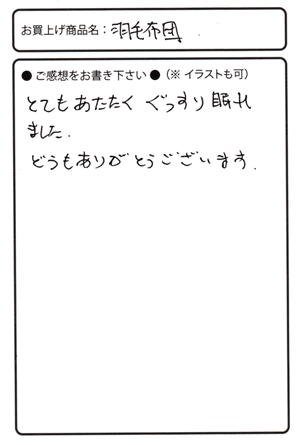 お買上げ商品名：羽毛布団.
●ご感想をお書き下さい●（※イラストも可）
とてもあたたく ぐっすり眠れ
ました.
どうもありがとうございます.